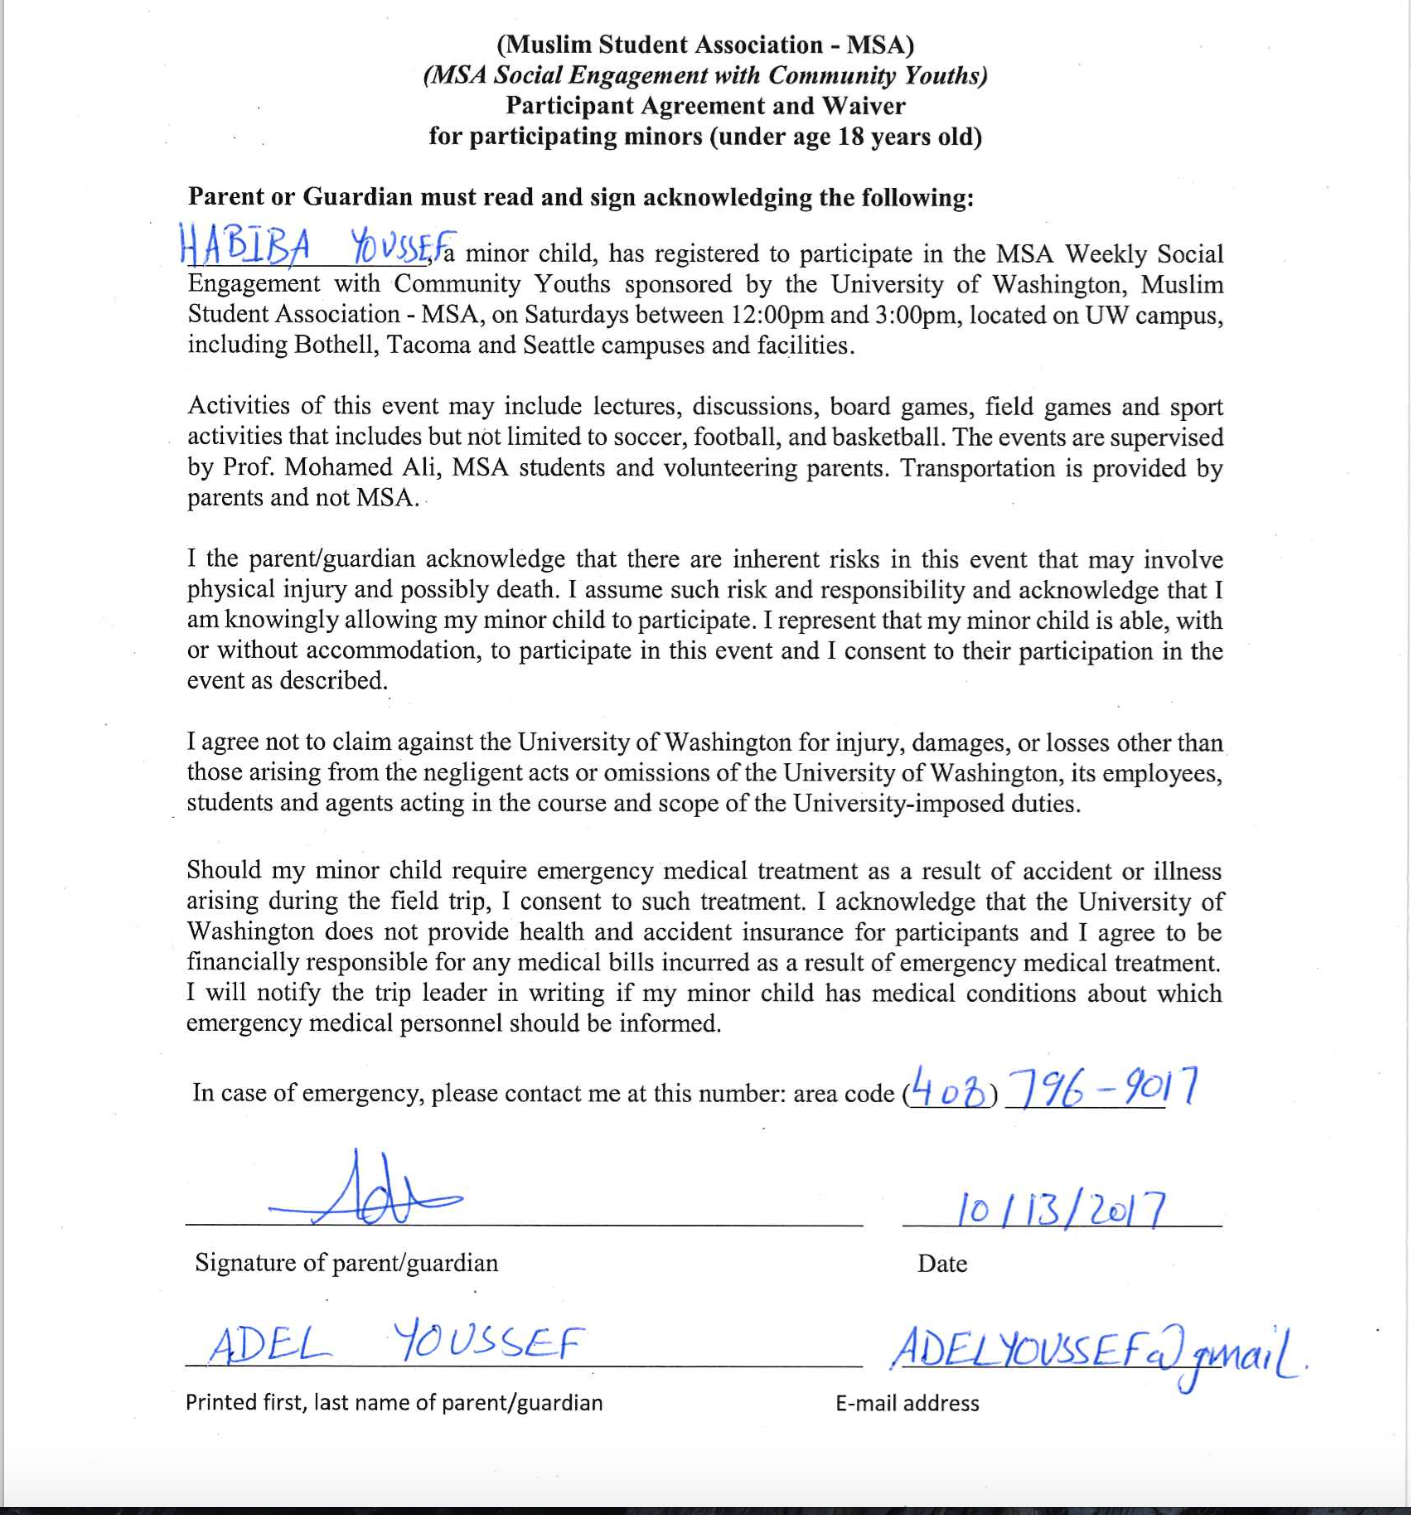 (Muslim Student Association - MSA)
(MSA Social Engagement with Community Youths)
Participant Agreement and Waiver
for participating minors (under age 18 years old)
Parent or Guardian must read and sign acknowledging the following:
HABIBA YOUSSEF, a minor child, has registered to participate in the MSA Weekly Social
Engagement with Community Youths sponsored by the University of Washington, Muslim
Student Association - MSA, on Saturdays between 12:00pm and 3:00pm, located on UW campus,
including Bothell, Tacoma and Seattle campuses and facilities.
Activities of this event may include lectures, discussions, board games, field games and sport
activities that includes but not limited to soccer, football, and basketball. The events are supervised
by Prof. Mohamed Ali, MSA students and volunteering parents. Transportation is provided by
parents and not MSA.
I the parent/guardian acknowledge that there are inherent risks in this event that may involve
physical injury and possibly death. I assume such risk and responsibility and acknowledge that I
am knowingly allowing my minor child to participate. I represent that my minor child is able, with
or without accommodation, to participate in this event and I consent to their participation in the
event as described.
I agree not to claim against the University of Washington for injury, damages, or losses other than
those arising from the negligent acts or omissions of the University of Washington, its employees,
students and agents acting in the course and scope of the University-imposed duties.
Should my minor child require emergency medical treatment as a result of accident or illness
arising during the field trip, I consent to such treatment. I acknowledge that the University of
Washington does not provide health and accident insurance for participants and I agree to be
financially responsible for any medical bills incurred as a result of emergency medical treatment.
I will notify the trip leader in writing if my minor child has medical conditions about which
emergency medical personnel should be informed.
In case of emergency, please contact me at this number: area code (408) 796-9017
10/13/2017
Signature of parent/guardian Date
ADEL YOUSSEF ADELYOUSSEF@gmail.
Printed first, last name of parent/guardian E-mail address